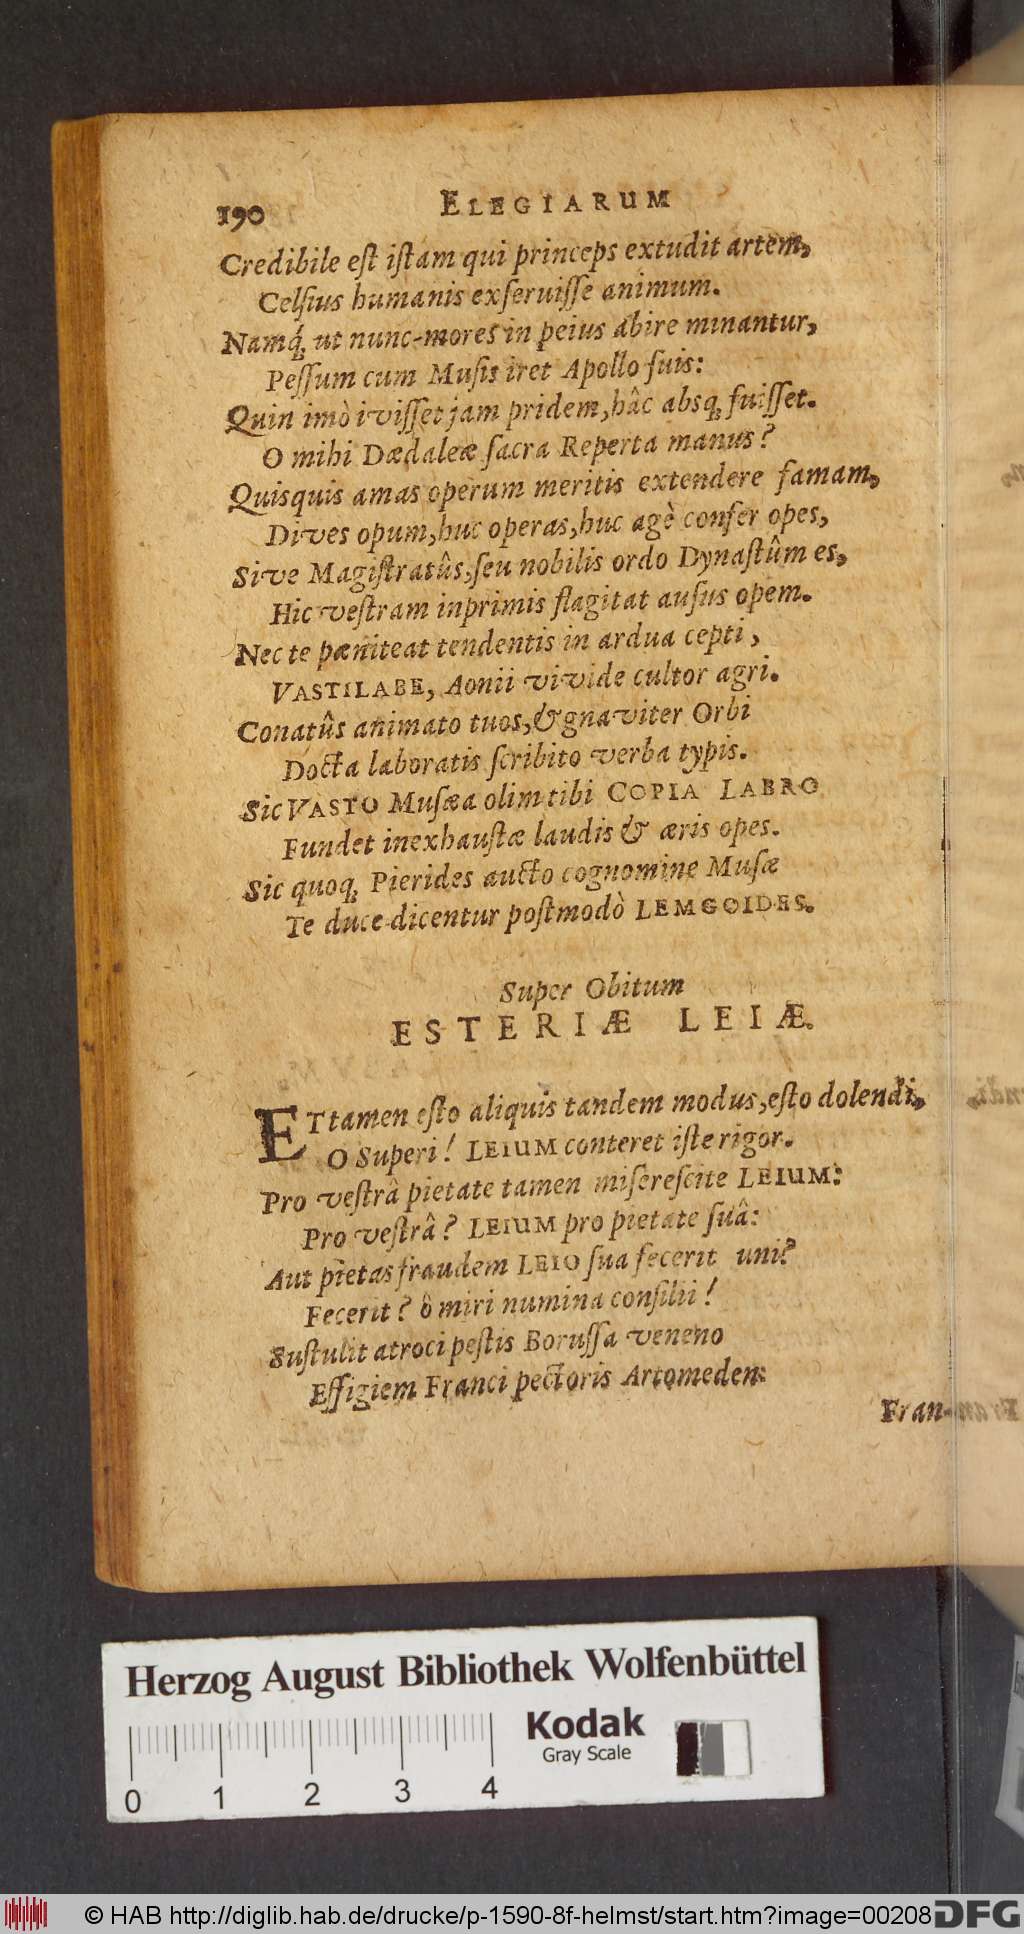 190 ELEGIARUM
Credibile eſt iſtam qui princeps extudit artem,
Celſius humanis exſeruiſſe animum.
Namq́ꝫ ut nunc mores in peius abire minantur,
Peſſum cum Muſis iret Apollo ſuis:
Quin imò iviſſet jam pridem, hâc absqꝫ fuiſſet.
O mihi Dædaleæ ſacra Reperta manus?
Quisquis amas operum meritis extendere famam,
Dives opum, huc operas, huc agè confer opes,
Sive Magiſtratûs, ſeu nobilis ordo Dynaſtûm es,
Hic veſtram inprimis flagitat auſus opem.
Nec te pæniteat tendentis in ardua cepti,
VASTILABE, Aonii vivide cultor agri.
Conatûs animato tuos, & gnaviter Orbi
Docta laboratis ſcribito verba typis.
Sic VASTO Muſæa olim tibi COPIA LABRO
Fundet inexhauſtæ laudis & æris opes.
Sic quoqꝫ Pierides aucto cognomine Muſæ
Te duce dicentur poſtmodò LEMGOIDES.
Super Obitum
ESTERIÆ LEIÆ.
ET tamen eſto aliquis tandem modus, eſto dolendi,
O Superi! LEIUM conteret iſte rigor.
Pro veſtrâ pietate tamen miſereſcite LEIUM:
Pro veſtrâ? LEIUM pro pietate ſuâ:
Aut pietas fraudem LEIO ſua fecerit uni?
Fecerit? ô miri numina conſilii!
Suſtulit atroci peſtis Boruſſa veneno
Effigiem Franci pectoris Artomeden:
Fran-
Herzog August Bibliothek Wolfenbüttel
Kodak
Gray Scale
0 1 2 3 4
© HAB http://diglib.hab.de/drucke/p-1590-8f-helmst/start.htm?image=00208
DFG